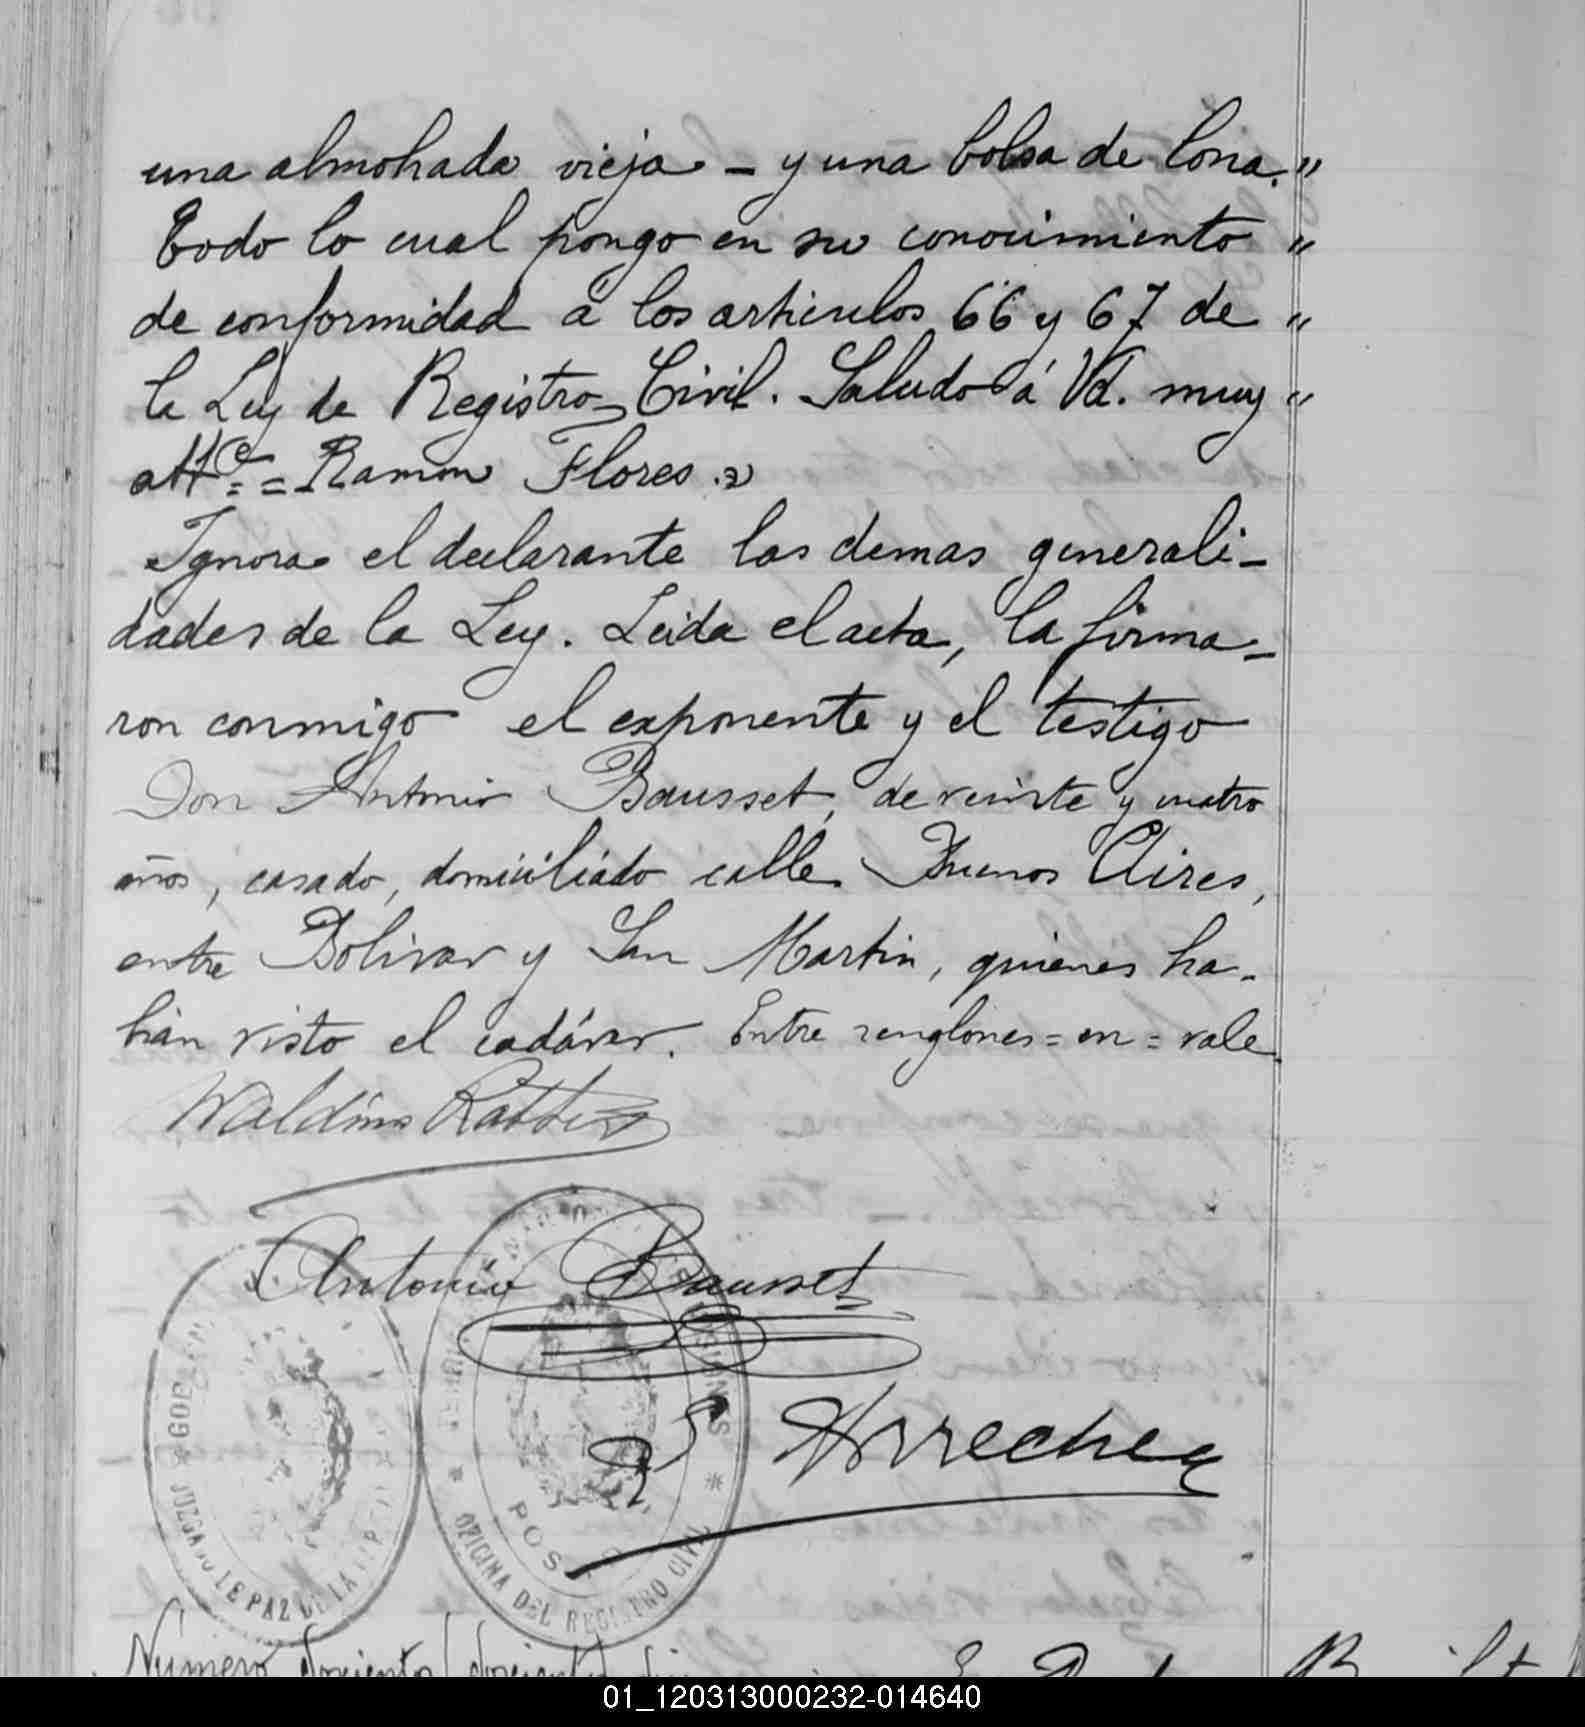 una almohada vieja - y una bolsa de lona. "
Todo lo cual pongo en su conocimiento "
de conformidad á los articulos 66 y 67 de "
la Ley de Registro Civil. Saludo á Vd. muy "
attᵉ. = = Ramon Flores.
Ignora el declarante las demas generali-
dades de la Ley. Leida el acta, la firma-
ron conmigo el exponente y el testigo
Don Antonio Bausset, de veinte y cuatro
años, casado, domiciliado calle Buenos Aires,
entre Bolivar y San Martin, quienes ha-
bián visto el cadáver. Entre renglones = en = vale
Waldino
Antonio Bausset
Arrechea
GOBERN
JUZGADO DE PAZ DE LA
MISIONES
POS
OFICINA DEL REGISTRO CIVIL
Número doscientos
01_120313000232-014640